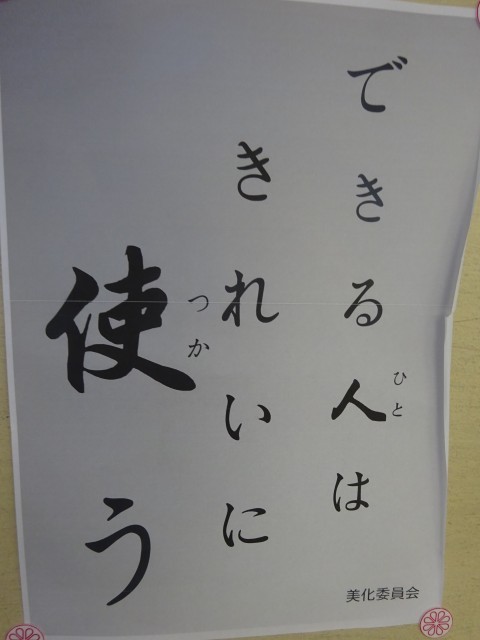 できる人は
ひと
きれいに
使う
つか
美化委員会